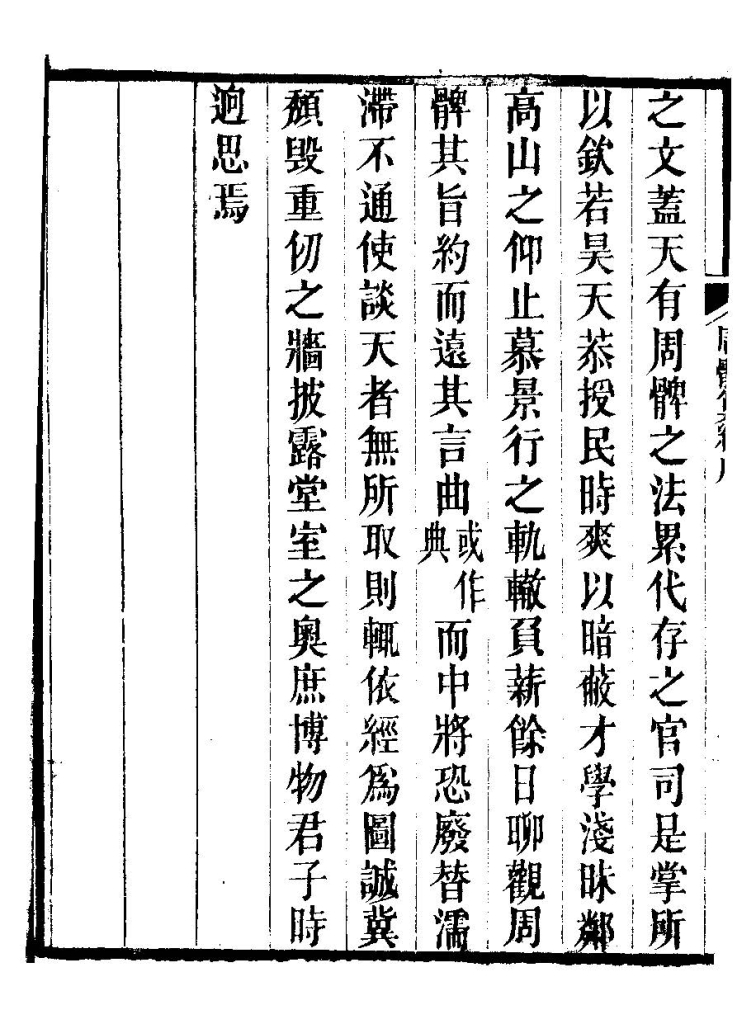 之文蓋天有周髀之法累代存之官司是掌所
以欽若昊天恭授民時爽以暗蔽才學淺昧鄰
高山之仰止慕景行之軌轍負薪餘日聊觀周
髀其旨約而遠其言曲或作典而中將恐廢替濡
滯不通使談天者無所取則輒依經爲圖誠冀
頹毀重仞之牆披露堂室之奧庶博物君子時
逈思焉